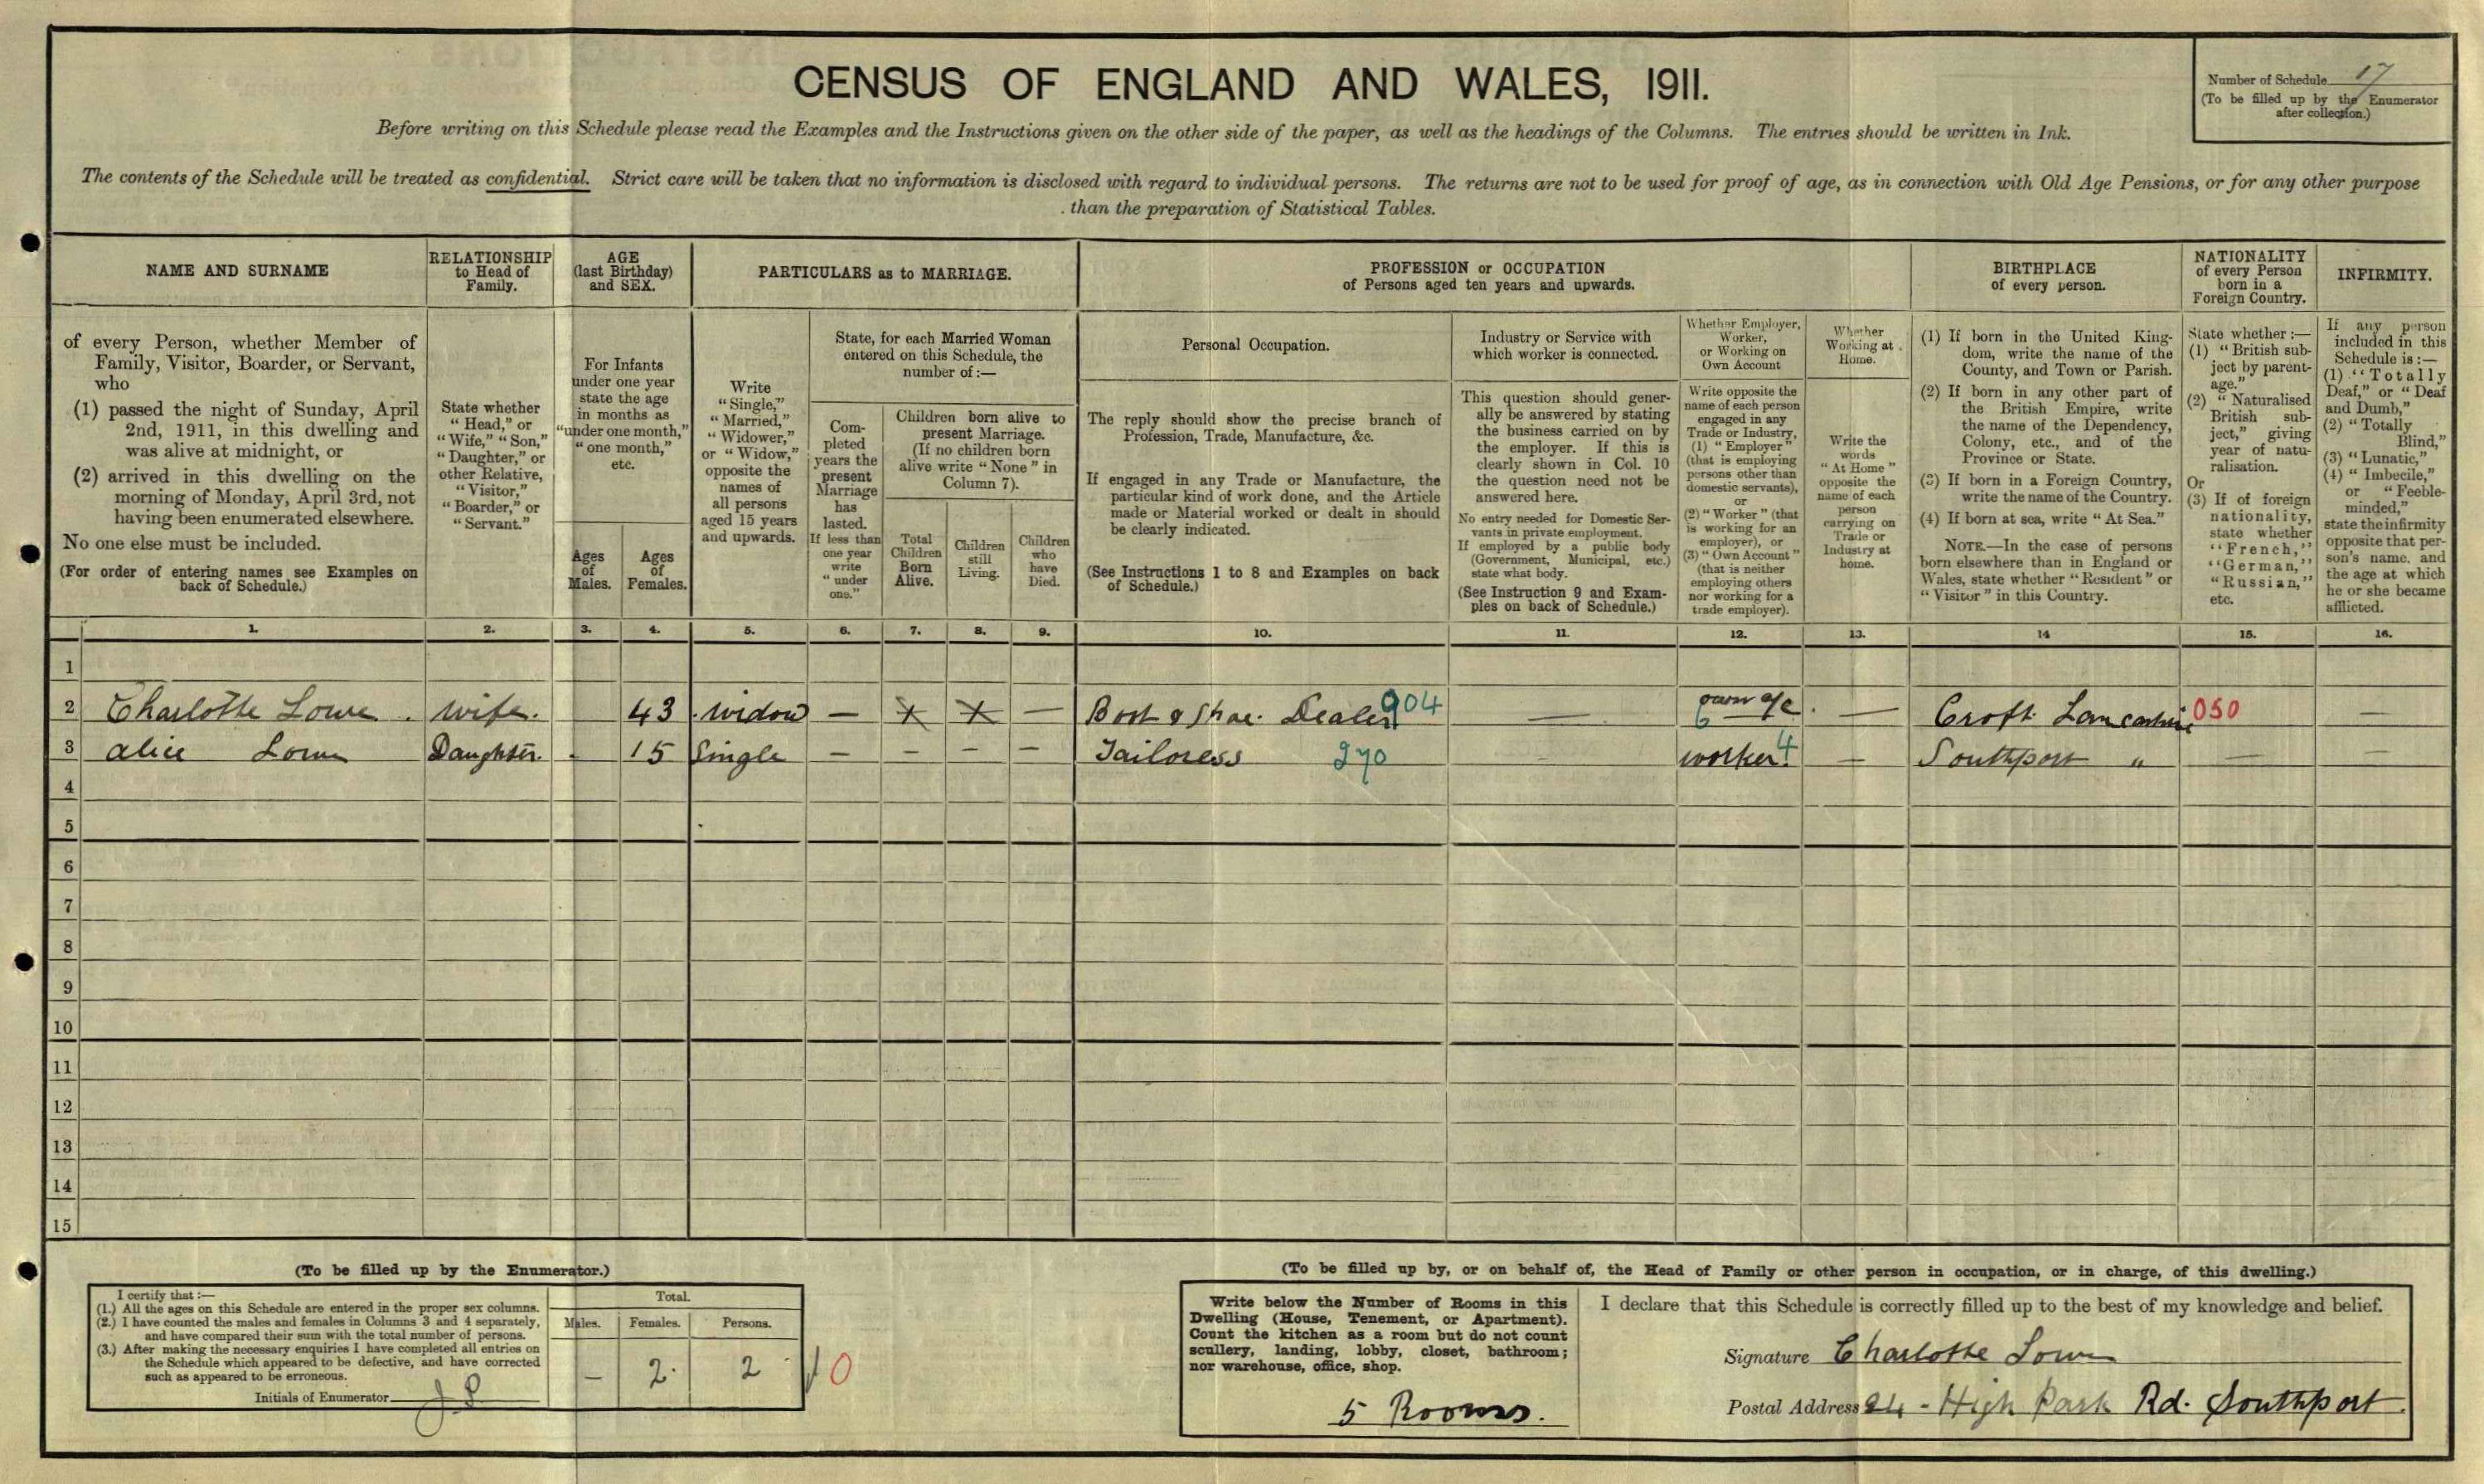 CENSUS OF ENGLAND AND WALES, 1911.
Number of Schedule 17
(To be filled up by the Enumerator
after collection.)
Before writing on this Schedule please read the Examples and the Instructions given on the other side of the paper, as well as the headings of the Columns. The entries should be written in Ink.
The contents of the Schedule will be treated as confidential. Strict care will be taken that no information is disclosed with regard to individual persons. The returns are not to be used for proof of age, as in connection with Old Age Pensions, or for any other purpose
than the preparation of Statistical Tables.
NAME AND SURNAME
of every Person, whether Member of
Family, Visitor, Boarder, or Servant,
who
(1) passed the night of Sunday, April
2nd, 1911, in this dwelling and
was alive at midnight, or
(2) arrived in this dwelling on the
morning of Monday, April 3rd, not
having been enumerated elsewhere.
No one else must be included.
(For order of entering names see Examples on
back of Schedule.)
RELATIONSHIP
to Head of
Family.
State whether
"Head," or
"Wife," "Son,"
"Daughter," or
other Relative,
"Visitor,"
"Boarder," or
"Servant."
AGE
(last Birthday)
and SEX.
For Infants
under one year
state the age
in months as
"under one month,"
"one month,"
etc.
Ages
of
Males.
Ages
of
Females.
PARTICULARS as to MARRIAGE.
Write
"Single,"
"Married,"
"Widower,"
or "Widow,"
opposite the
names of
all persons
aged 15 years
and upwards.
State, for each Married Woman
entered on this Schedule, the
number of:—
Com-
pleted
years the
present
Marriage
has
lasted.
If less than
one year
write
"under
one."
Children born alive to
present Marriage.
(If no children born
alive write "None" in
Column 7).
Total
Children
Born
Alive.
Children
still
Living.
Children
who
have
Died.
PROFESSION or OCCUPATION
of Persons aged ten years and upwards.
Personal Occupation.
The reply should show the precise branch of
Profession, Trade, Manufacture, &c.
If engaged in any Trade or Manufacture, the
particular kind of work done, and the Article
made or Material worked or dealt in should
be clearly indicated.
(See Instructions 1 to 8 and Examples on back
of Schedule.)
Industry or Service with
which worker is connected.
This question should gener-
ally be answered by stating
the business carried on by
the employer. If this is
clearly shown in Col. 10
the question need not be
answered here.
No entry needed for Domestic Ser-
vants in private employment.
If employed by a public body
(Government, Municipal, etc.)
state what body.
(See Instruction 9 and Exam-
ples on back of Schedule.)
Whether Employer,
Worker,
or Working on
Own Account
Write opposite the
name of each person
engaged in any
Trade or Industry,
(1) "Employer"
(that is employing
persons other than
domestic servants),
or
(2) "Worker" (that
is working for an
employer), or
(3) "Own Account"
(that is neither
employing others
nor working for a
trade employer).
Whether
Working at
Home.
Write the
words
"At Home"
opposite the
name of each
person
carrying on
Trade or
Industry at
home.
BIRTHPLACE
of every person.
(1) If born in the United King-
dom, write the name of the
County, and Town or Parish.
(2) If born in any other part of
the British Empire, write
the name of the Dependency,
Colony, etc., and of the
Province or State.
(3) If born in a Foreign Country,
write the name of the Country.
(4) If born at sea, write "At Sea."
NOTE.—In the case of persons
born elsewhere than in England or
Wales, state whether "Resident" or
"Visitor" in this Country.
NATIONALITY
of every Person
born in a
Foreign Country.
State whether:—
(1) "British sub-
ject by parent-
age."
(2) "Naturalised
British sub-
ject," giving
year of natu-
ralisation.
Or
(3) If of foreign
nationality,
state whether
"French,"
"German,"
"Russian,"
etc.
INFIRMITY.
If any person
included in this
Schedule is:—
(1) "Totally
Deaf," or "Deaf
and Dumb,"
(2) "Totally
Blind,"
(3) "Lunatic,"
(4) "Imbecile,"
or "Feeble-
minded,"
state the infirmity
opposite that per-
son's name, and
the age at which
he or she became
afflicted.
1. 2. 3. 4. 5. 6. 7. 8. 9. 10. 11. 12. 13. 14 15. 16.
1
2 Charlotte Lowe. wife. 43 widow — — Boot & Shoe. Dealer 904 — own a/c 6 — Croft Lancashire 050 —
3 Alice Lowe Daughter. 15 Single — — — — Tailoress 270 — worker 4 — Southport " — —
4
5
6
7
8
9
10
11
12
13
14
15
(To be filled up by the Enumerator.)
I certify that:—
(1.) All the ages on this Schedule are entered in the proper sex columns.
(2.) I have counted the males and females in Columns 3 and 4 separately,
and have compared their sum with the total number of persons.
(3.) After making the necessary enquiries I have completed all entries on
the Schedule which appeared to be defective, and have corrected
such as appeared to be erroneous.
Initials of Enumerator
Total.
Males. Females. Persons.
— 2. 2 0
(To be filled up by, or on behalf of, the Head of Family or other person in occupation, or in charge, of this dwelling.)
Write below the Number of Rooms in this
Dwelling (House, Tenement, or Apartment).
Count the kitchen as a room but do not count
scullery, landing, lobby, closet, bathroom;
nor warehouse, office, shop.
5 Rooms.
I declare that this Schedule is correctly filled up to the best of my knowledge and belief.
Signature Charlotte Lowe
Postal Address 24 - High Park Rd. Southport.